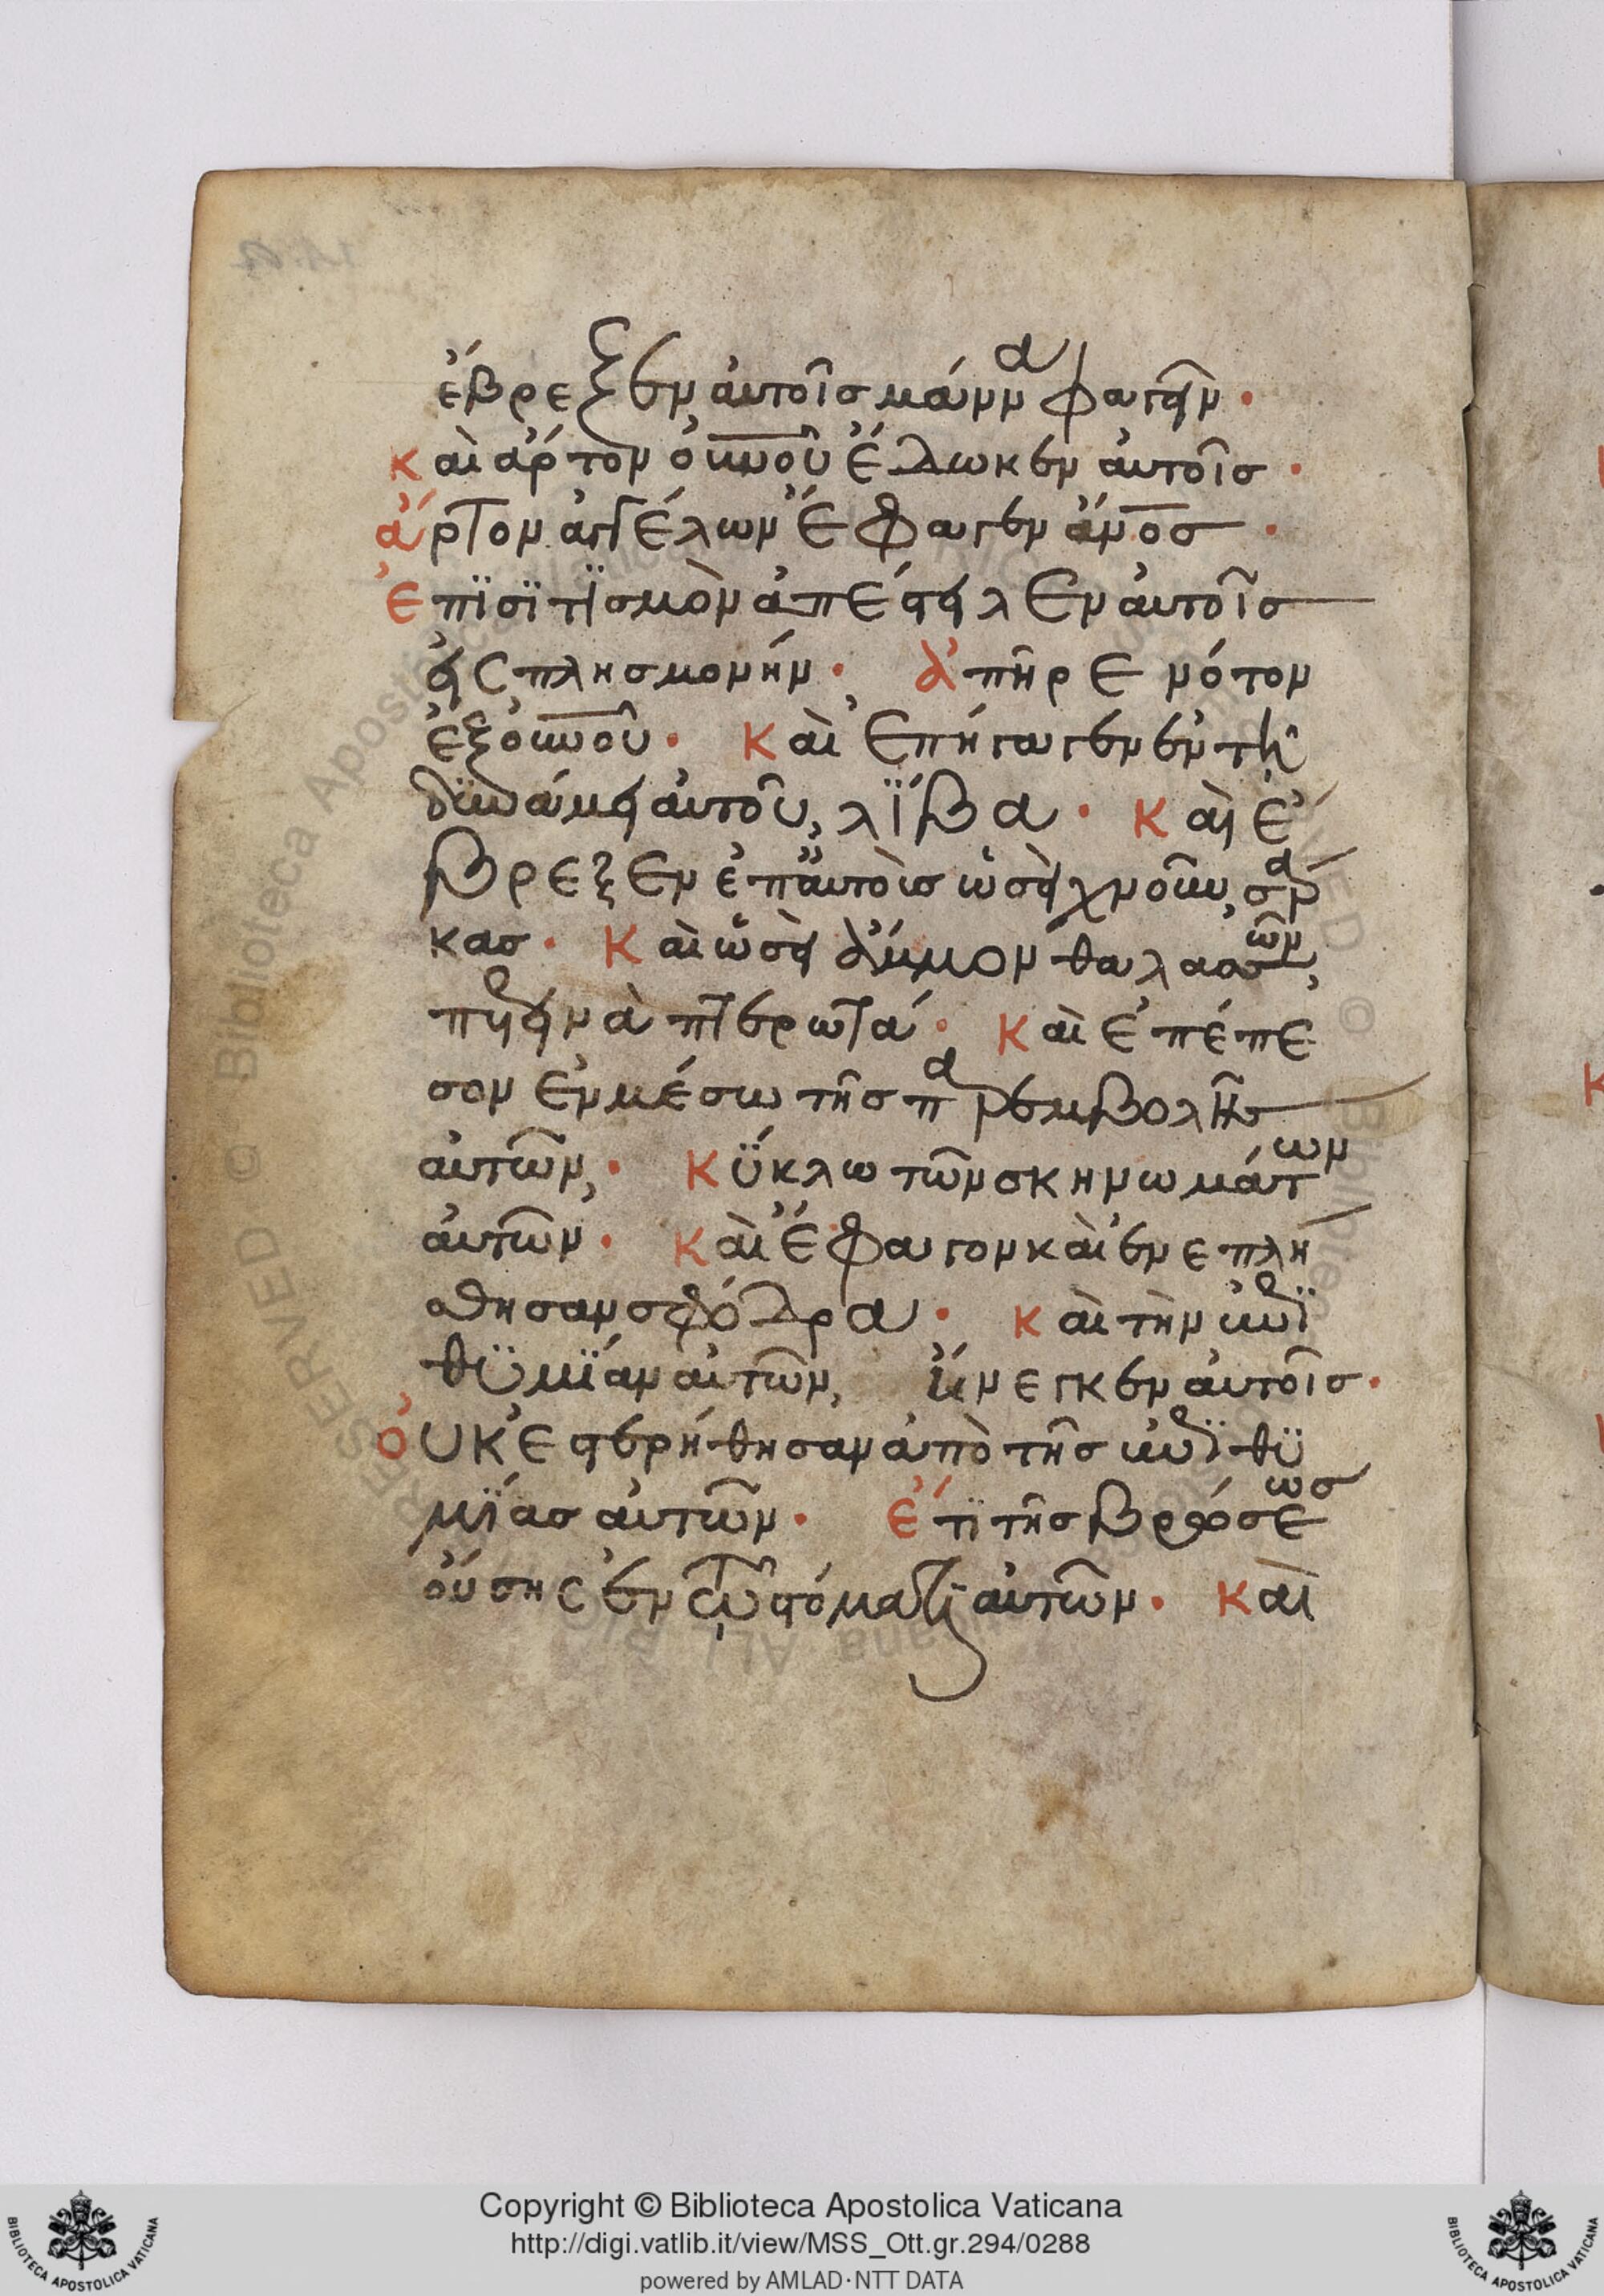 ἔβρεξεν αὐτοῖς μάννα φαγεῖν·
καὶ ἄρτον οὐνοῦ ἔδωκεν αὐτοῖς·
ἄρτον ἀγγέλων ἔφαγεν ἄνος·
ἐπϊσϊτϊσμὸν ἀπέστειλεν αὐτοῖς
εἰς πλησμονήν· ἀπῆρε νότον
ἐξ οὐνοῦ· καὶ ἐπήγαγεν ἐν τῆ
δϋνάμει αὐτοῦ, λϊβα· καὶ ἔ
βρεξεν ἐπ αὐτοὺσ ὡσεὶ χνοῦν, σάρ
κασ· καὶ ὡσεὶ ἄμμον θαλασσῶν,
πετεινὰ πτερωτά· καὶ ἐπέπε
σον ἐν μέσω τῆσ παρεμβολῆσ
αὐτῶν,· κϋκλω τῶν σκηνωμάτων
αὐτῶν· καὶ ἔφαγον καὶ ἐνεπλή
σθησαν σφόδρα· καὶ τὴν ἐπϊ
θϋμϊαν αὐτῶν, ἤνεγκεν αὐτοῖσ·
οὐκ ἐστερήθησαν ἀπὸ τῆσ ἐπϊθϋ
μϊασ αὐτῶν· ἔτϊ τῆσ βρώσεωσ
οὔσης ἐν τῶ στόματι αὐτῶν· καὶ
RESERVED © Biblioteca Apostolica Vaticana ALL RIGHTS
Copyright © Biblioteca Apostolica Vaticana
http://digi.vatlib.it/view/MSS_Ott.gr.294/0288
powered by AMLAD·NTT DATA
BIBLIOTECA APOSTOLICA VATICANA
BIBLIOTECA APOSTOLICA VATICANA